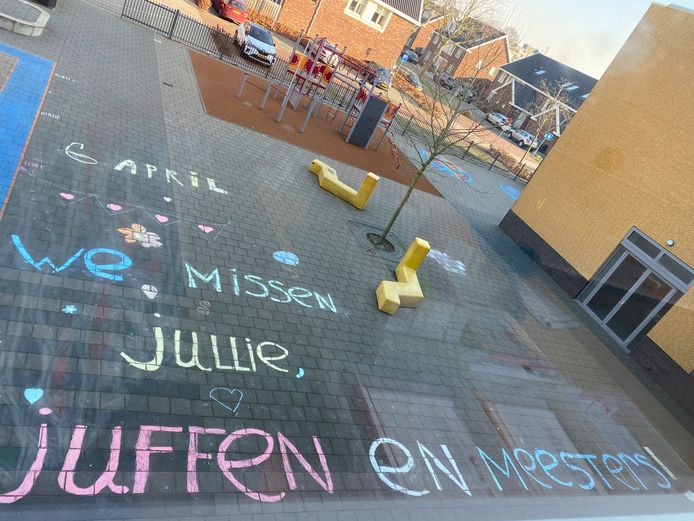 6 APRIL
We MISSEN
JULLIE,
JUFFEN EN MEESTERS!